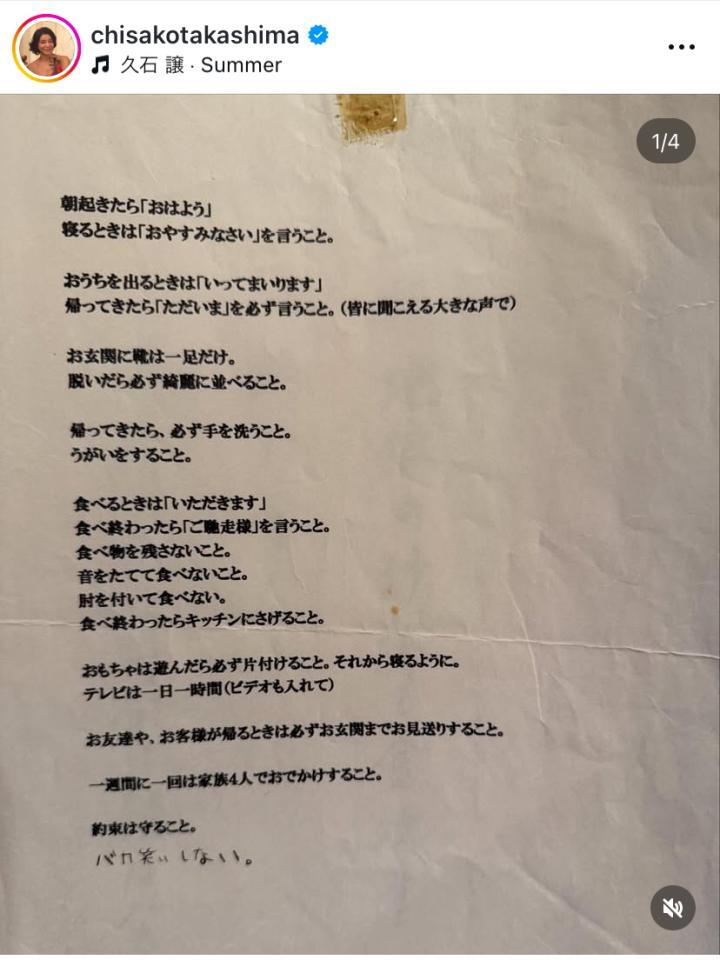 chisakotakashima
久石 譲 · Summer
1/4
朝起きたら「おはよう」
寝るときは「おやすみなさい」を言うこと。
おうちを出るときは「いってまいります」
帰ってきたら「ただいま」を必ず言うこと。（皆に聞こえる大きな声で）
お玄関に靴は一足だけ。
脱いだら必ず綺麗に並べること。
帰ってきたら、必ず手を洗うこと。
うがいをすること。
食べるときは「いただきます」
食べ終わったら「ご馳走様」を言うこと。
食べ物を残さないこと。
音をたてて食べないこと。
肘を付いて食べない。
食べ終わったらキッチンにさげること。
おもちゃは遊んだら必ず片付けること。それから寝るように。
テレビは一日一時間（ビデオも入れて）
お友達や、お客様が帰るときは必ずお玄関までお見送りすること。
一週間に一回は家族4人でおでかけすること。
約束は守ること。
バカ笑いしない。